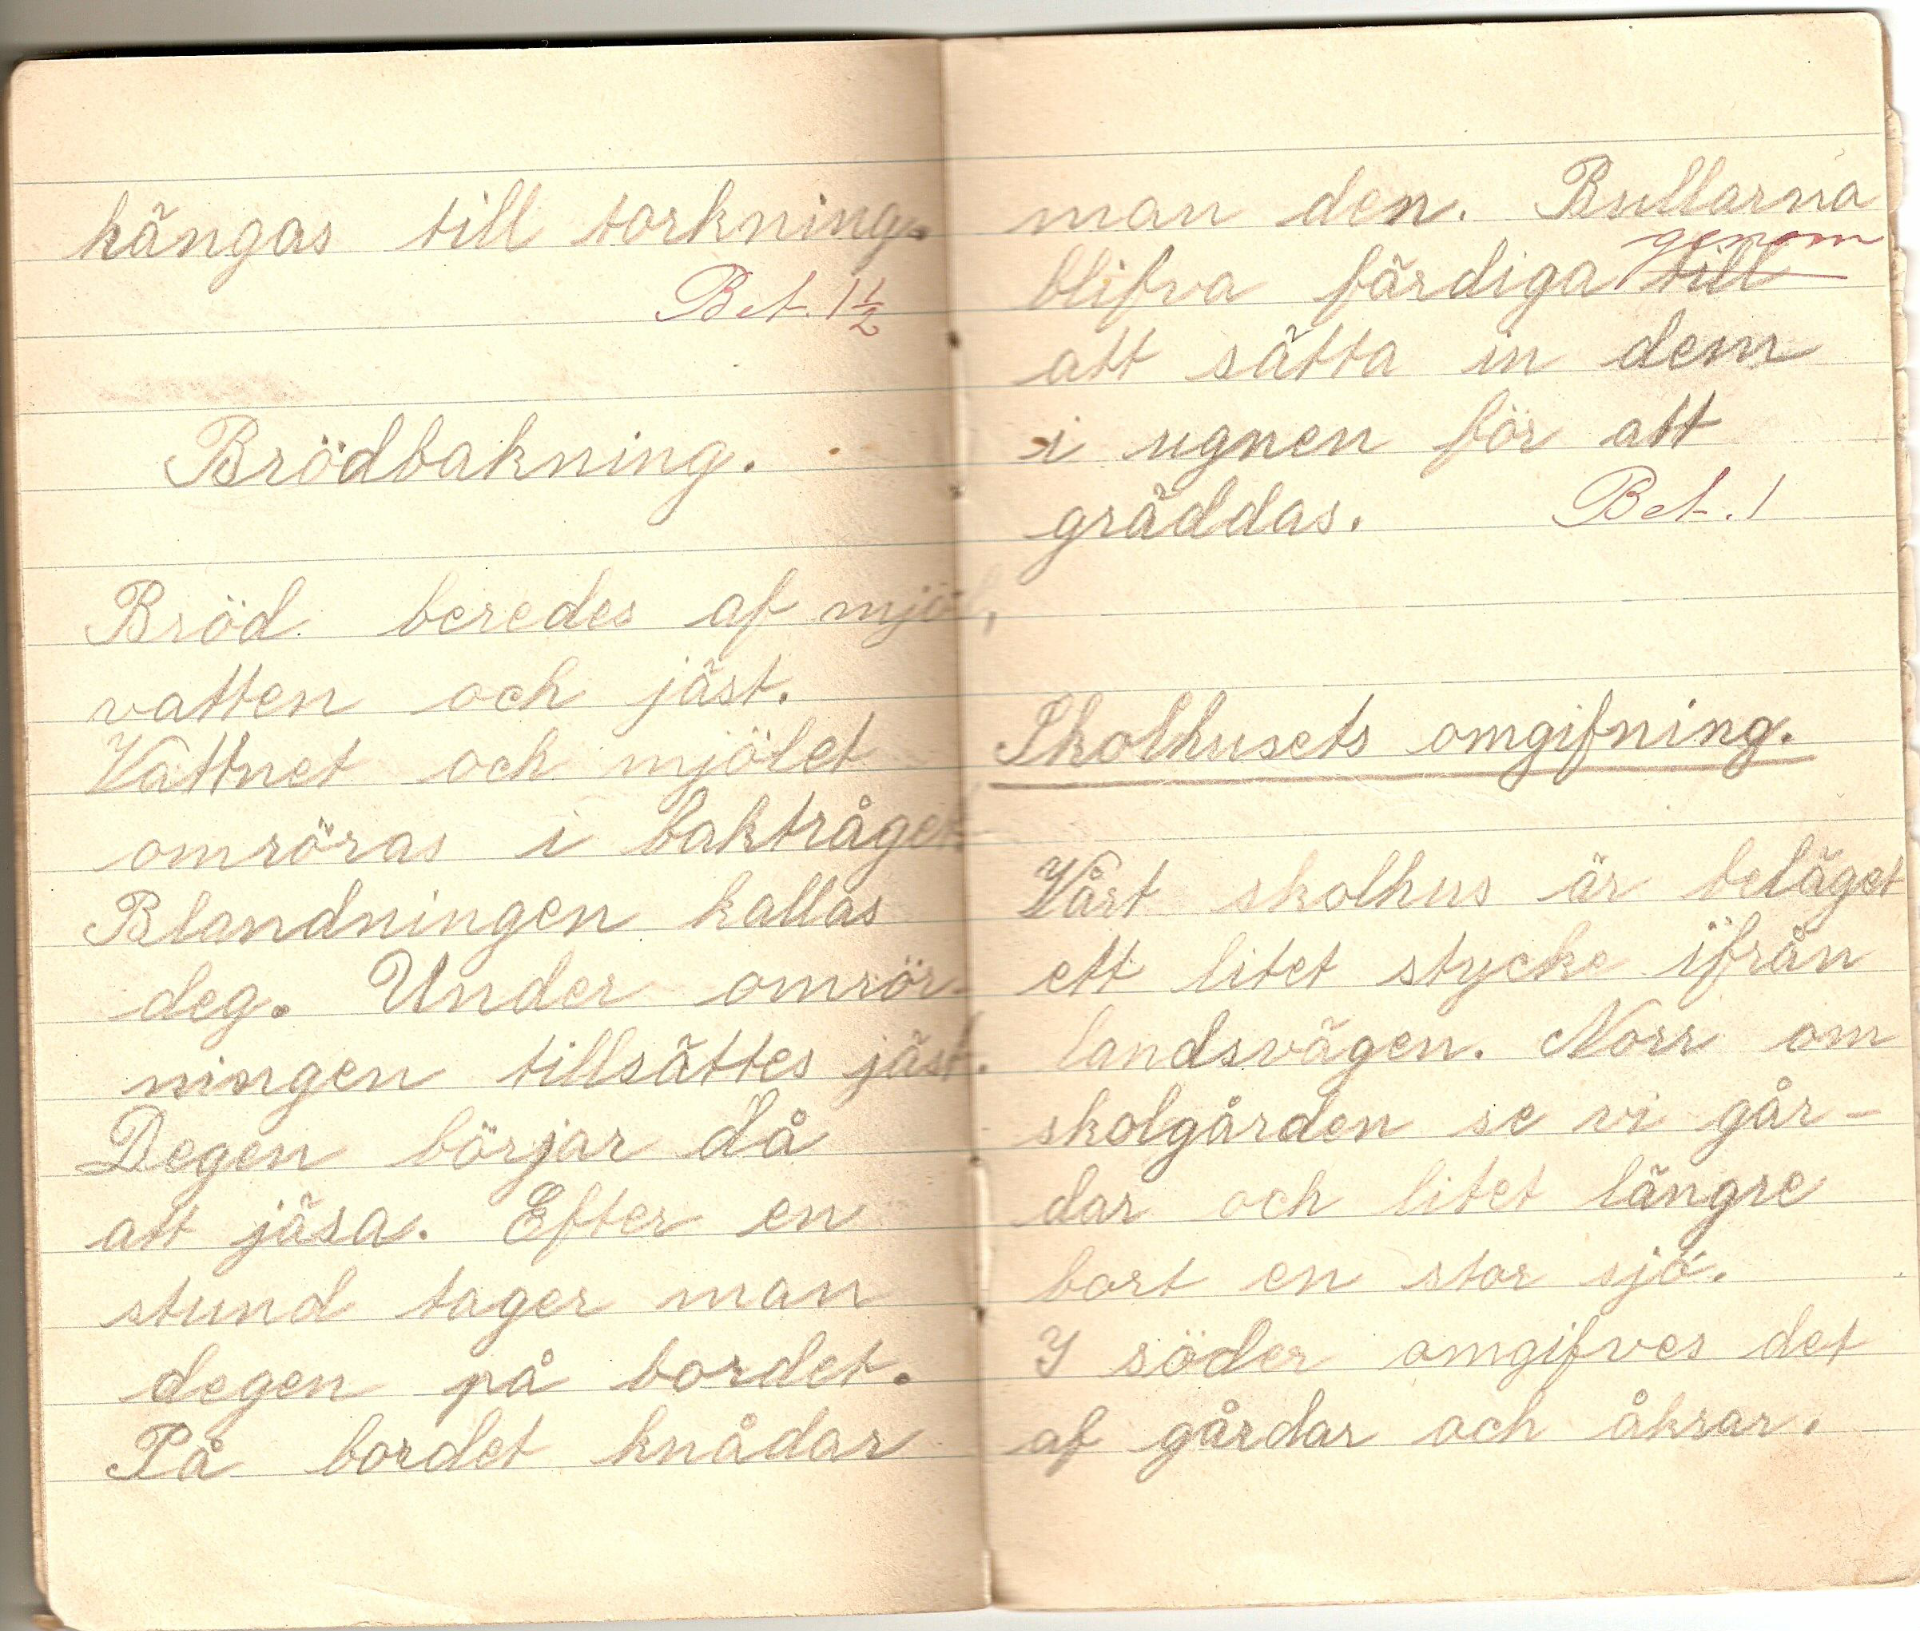 hängas till torkning.
Bet. 1½
Brödbakning.
Bröd beredes af mjöl,
vatten och jäst.
Vattnet och mjölet
omröras i baktråget.
Blandningen kallas
deg. Under omrör-
ningen tillsättes jäst.
Degen börjar då
att jäsa. Efter en
stund tager man
degen på bordet.
På bordet knådar
man den. Bullarna
genom
blifva färdiga till
att sätta in dem
i ugnen för att
gräddas. Bet. 1
Skolhusets omgifning.
Vårt skolhus är beläget
ett litet stycke ifrån
landsvägen. Norr om
skolgården se vi går-
dar och litet längre
bort en stor sjö.
I söder omgifves det
af gårdar och åkrar.